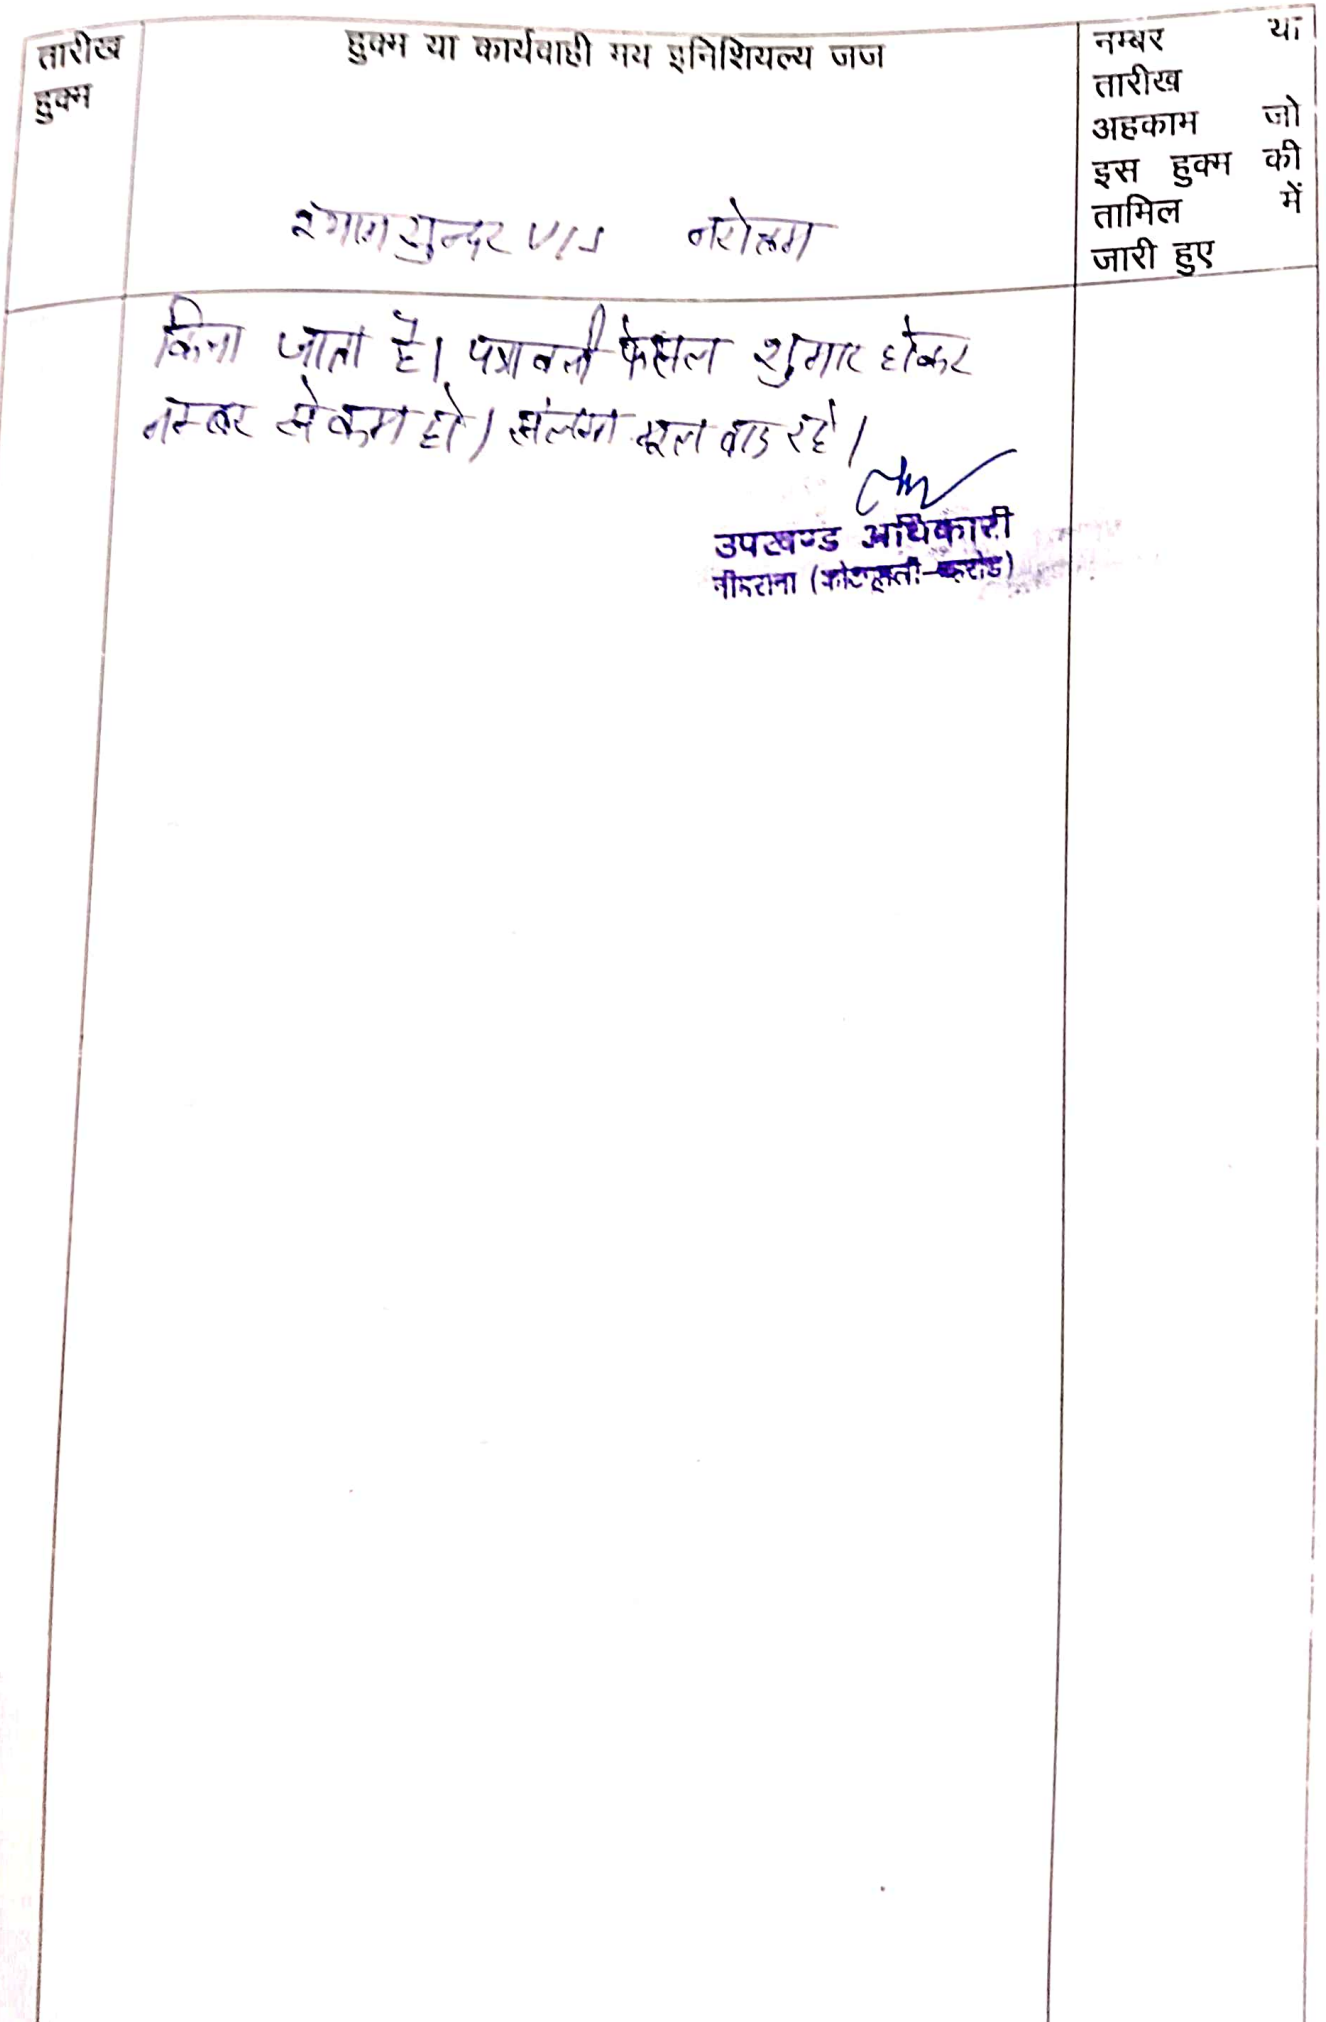 तारीख
हुक्म
हुक्म या कार्यवाही मय इनिशियल्य जज
नम्बर या
तारीख
अहकाम जो
इस हुक्म की
तामिल में
जारी हुए
श्याम सुन्दर V/S नरोत्तम
किया जाता है। पत्रावली फैसल शुमार होकर
नम्बर से कम हो। संलग्न मूल वाद रहे।
उपखण्ड अधिकारी
नीमराना (कोटपूतली-बहरोड)